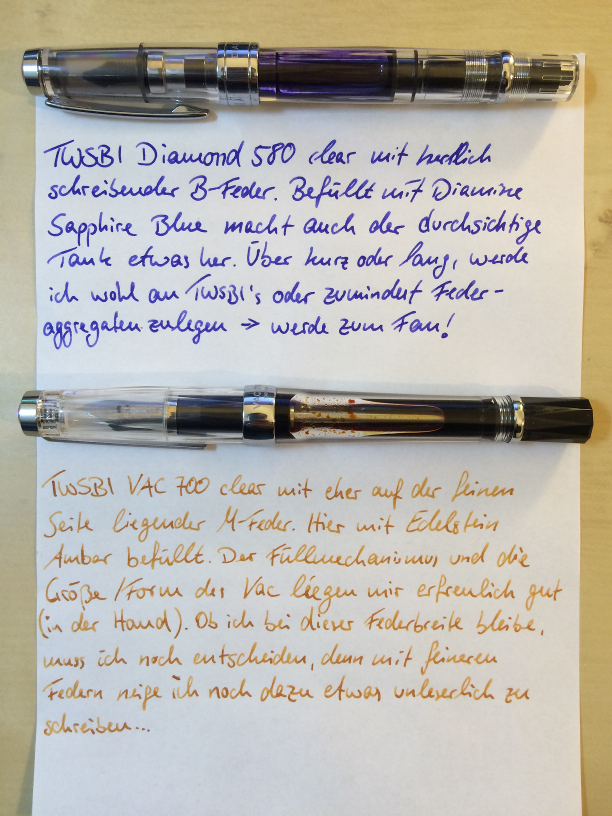 TWSBI Diamond 580 clear mit herrlich
schreibender B-Feder. Befüllt mit Diamine
Sapphire Blue macht auch der durchsichtige
Tank etwas her. Über kurz oder lang, werde
ich wohl an TWSBI's oder zumindest Feder-
aggregaten zulegen → werde zum Fan!
TWSBI VAC 700 clear mit eher auf der feinen
Seite liegender M-Feder. Hier mit Edelstein
Ambar befüllt. Der Füllmechanismus und die
Größe/Form des Vac liegen mir erfreulich gut
(in der Hand). Ob ich bei dieser Federbreite bleibe,
muss ich noch entscheiden, denn mit feineren
Federn neige ich noch dazu etwas unleserlich zu
schreiben...